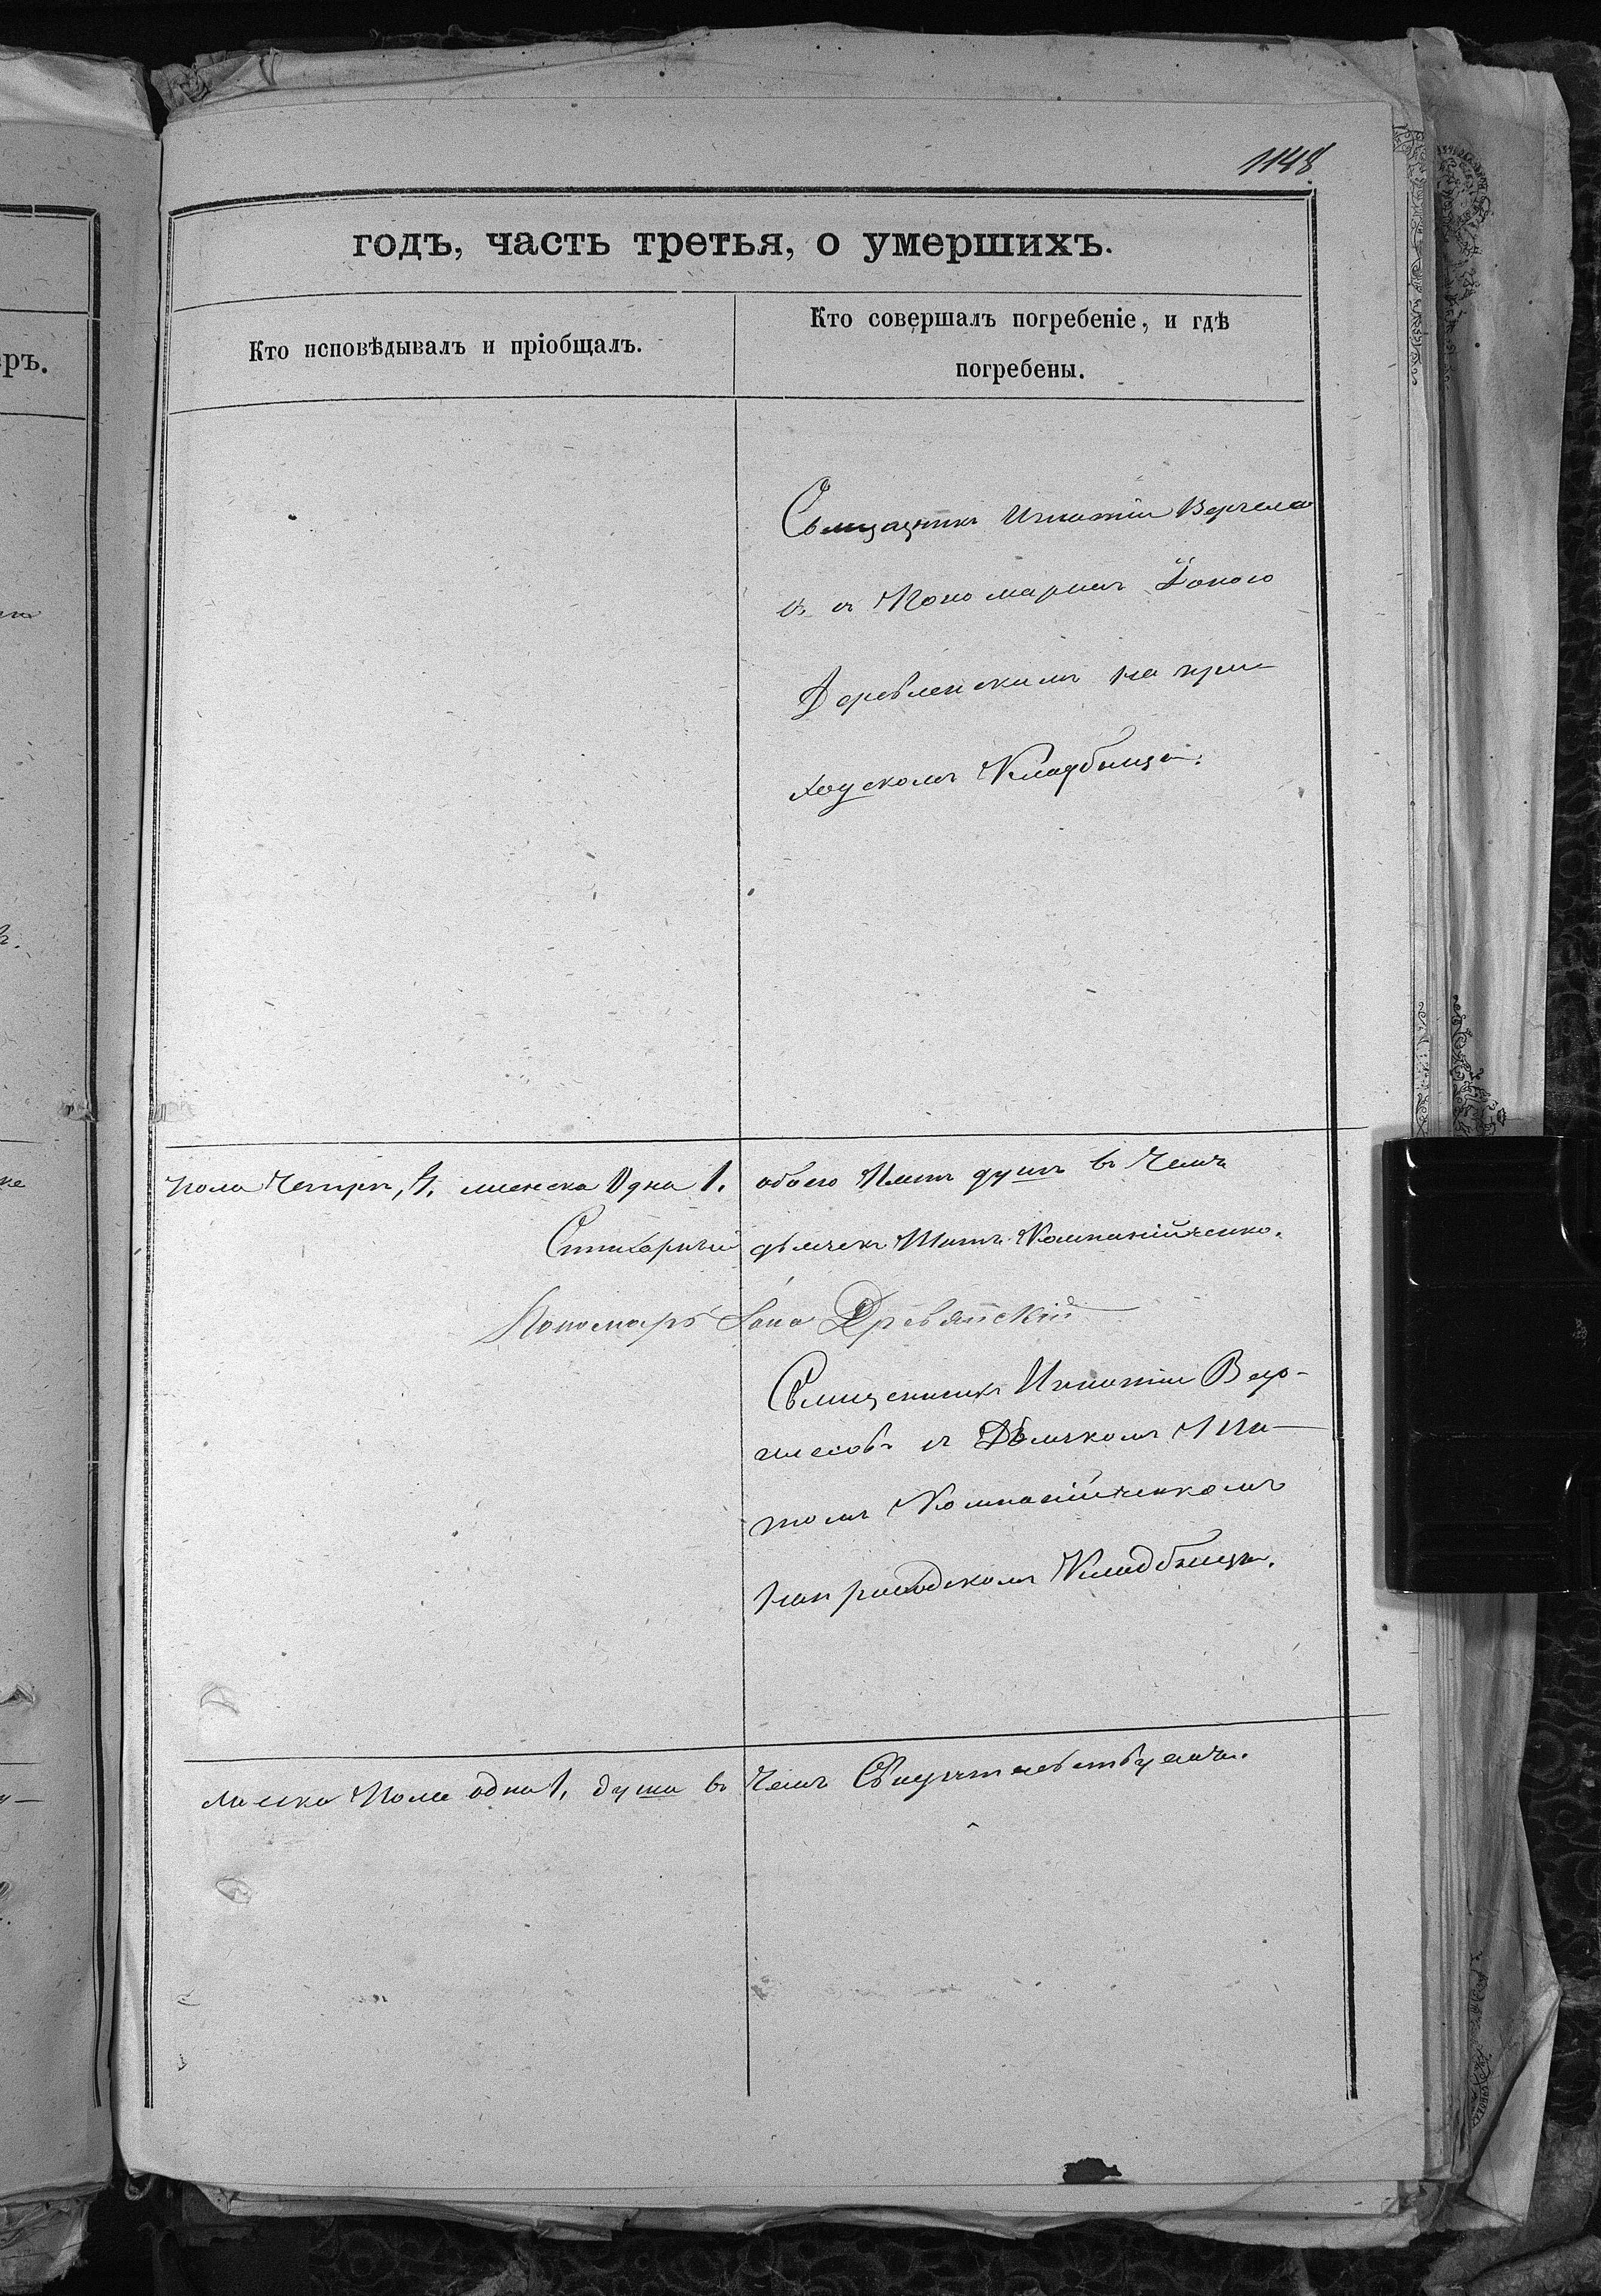 1148
годъ, часть третья, о умершихъ.
Кто исповѣдывалъ и пріобщалъ.
Кто совершалъ погребеніе, и гдѣ
погребены.
ръ.
Священникъ Игнатій
съ Пономаремъ Іоною
Деревленскимъ на при-
ходскомъ Кладбищѣ.
пола Четыри, 4. женска Одна 1. обоего Пять душъ въ Чемъ
Стихарный дьячекъ Титъ Компанійченко.
Пономарь Іона Древянскій
Священникъ Игнатій
съ Дьячкомъ Ти-
томъ Компанійченкомъ
на приходскомъ Кладбищѣ.
пола одна 1, душа въ Чемъ Свидѣтельствуемъ.